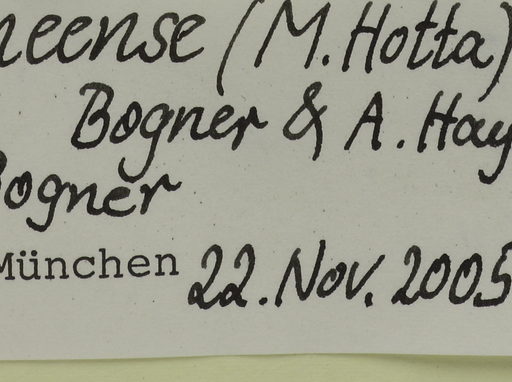 neense (M. Hotta)
Bogner & A. Hay
Bogner
München 22. Nov. 2005